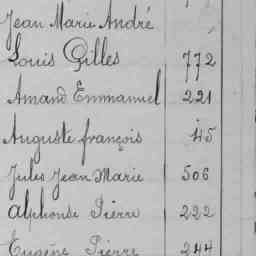 Jean Marie André
Louis Gilles 772
Amand Emmanuel 221
Auguste françois 45
Jules Jean Marie 506
Alphonse Pierre 222
Eugène Pierre 244